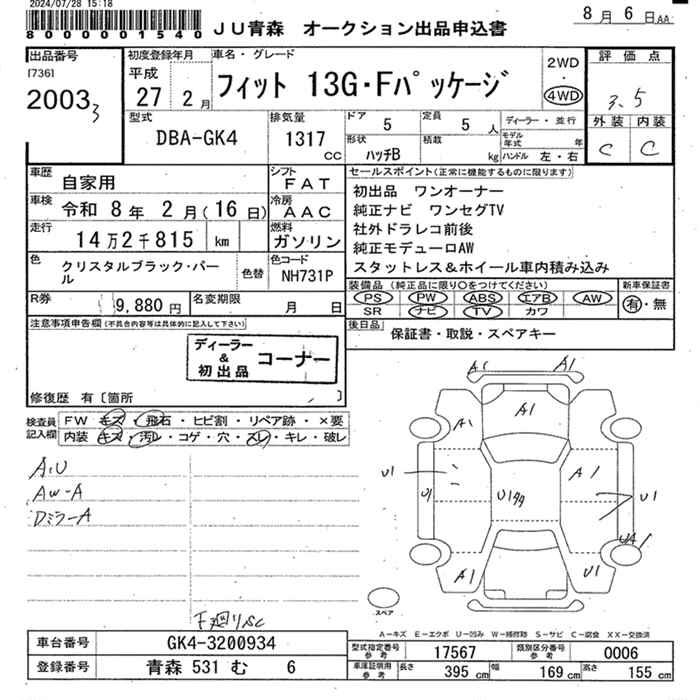 2024/07/28 15:18
8000001540
JU青森 オークション出品申込書
8月6日AA
出品番号
[736]
2003
3
初度登録年月
平成
27 2月
車名・グレード
フィット 13G・Fパッケージ
2WD
・
4WD
評価点
3.5
外装 内装
C C
型式
DBA-GK4
排気量
1317
cc
ドア
5
定員
5人
形状
ハッチB
積載
kg
ディーラー・並行
モデル年式 年
ハンドル 左・右
車歴
自家用
シフト
FAT
車検
令和8年2月(16日)
冷房
AAC
走行
14万2千815 km
燃料
ガソリン
色
クリスタルブラック・パール
色替
色コード
NH731P
R券
9,880円
名変期限
月 日
セールスポイント(正常に機能するものに限ります)
初出品 ワンオーナー
純正ナビ ワンセグTV
社外ドラレコ前後
純正モデューロAW
スタットレス&ホイール車内積み込み
装備品(純正品に限り○をつけてください)
PS PW ABS エアB AW
SR ナビ TV カワ
新車保証書
有・無
後日品
保証書・取説・スペアキー
注意事項申告欄(不具合内容等は具体的に記入して下さい)
ディーラー
&
初出品
コーナー
修復歴 有〔箇所 〕
検査員
記入欄
FW キズ・飛石・ヒビ割・リペア跡・×要
内装 キズ・汚レ・コゲ・穴・スレ・キレ・破レ
A,U
AW-A
Dミラー A
下廻りSC
A1 A1
A1
A1
U1
U1
A1
U1
U1
A1
U1
スペア
A-キズ E-エクボ U-凹み W-補修跡 S-サビ C-腐食 XX-交換済
車台番号
GK4-3200934
登録番号
青森 531 む 6
型式指定番号
参考
17567
類別区分番号
参考
0006
車庫証明用
参考
長さ
395 cm
幅
169 cm
高さ
155 cm